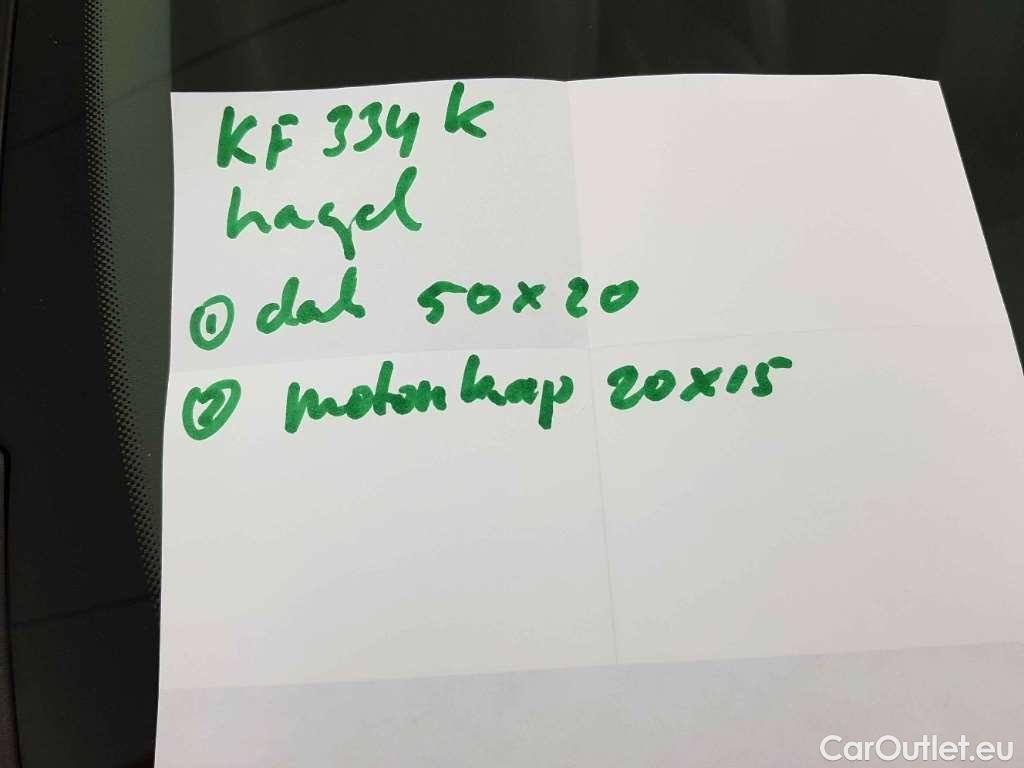 KF 334 K
hagel
① dak 50x20
② motorkap 20x15
CarOutlet.eu